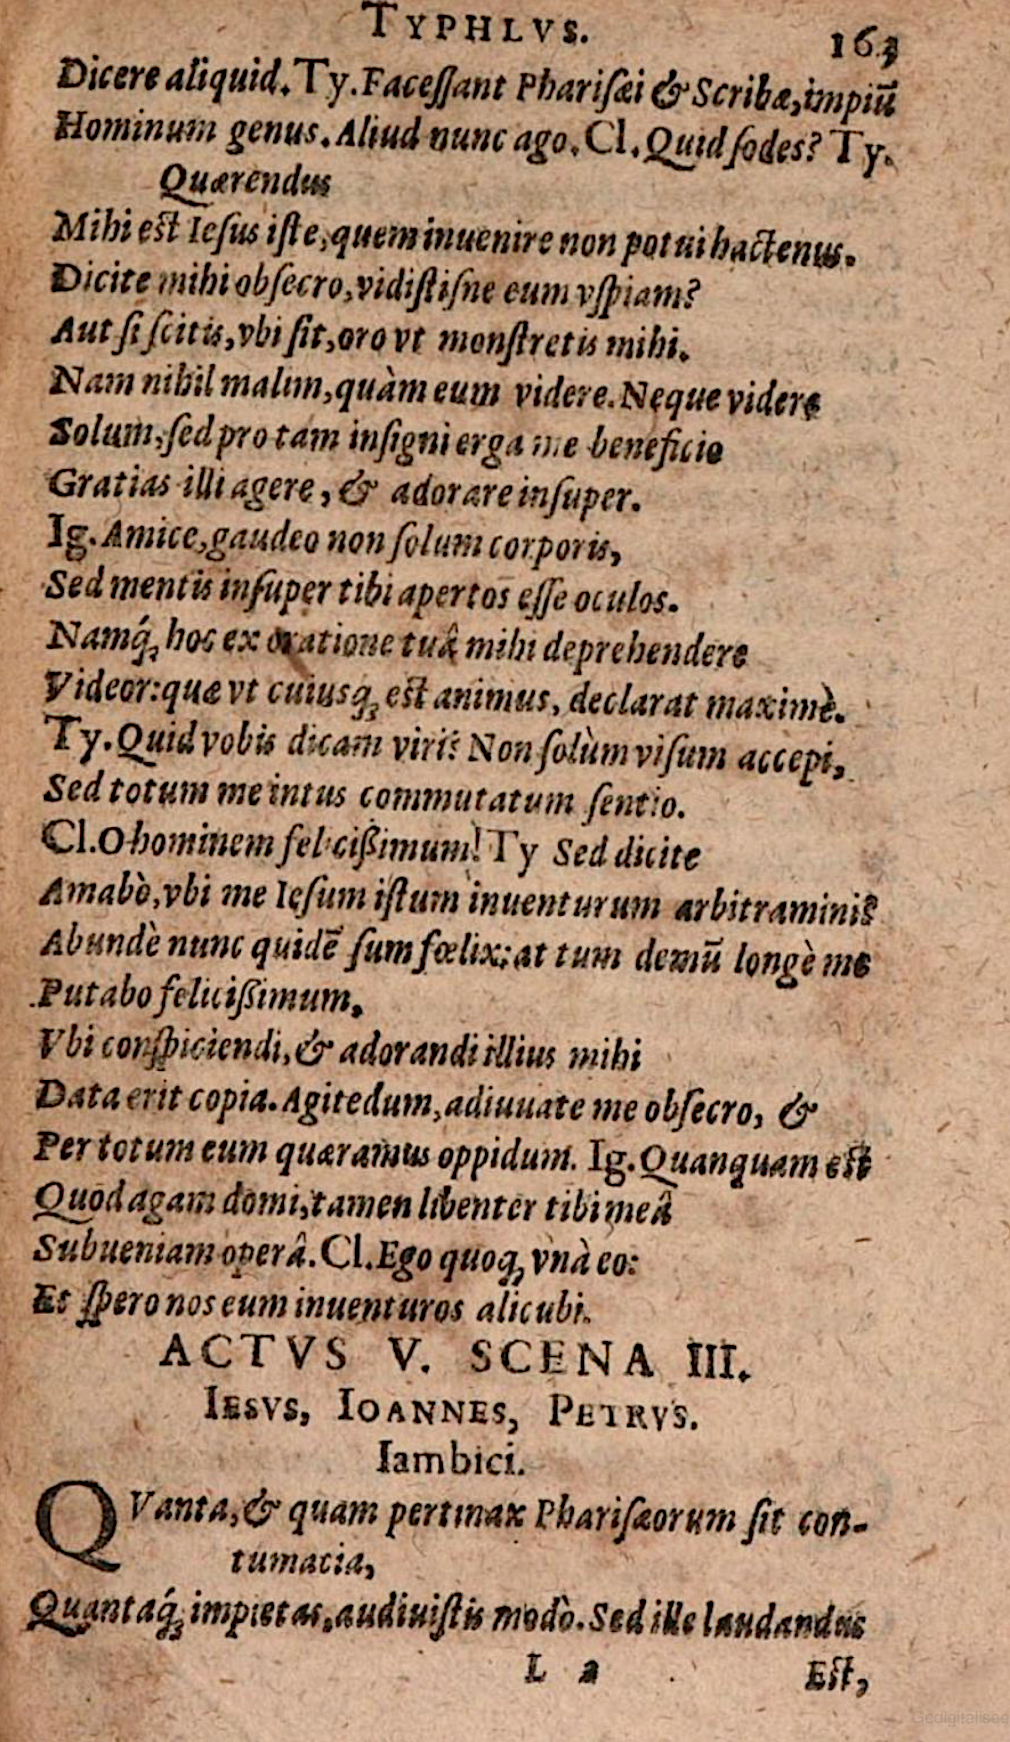 TYPHLVS. 163
Dicere aliquid. Ty. Faceſſant Phariſæi & Scribæ, impiū
Hominum genus. Aliud nunc ago. Cl. Quid ſodes? Ty.
Quærendus
Mihi eſt Ieſus iſte, quem inuenire non potui hactenus.
Dicite mihi obſecro, vidiſtiſne eum vſpiam?
Aut ſi ſcitis, vbi ſit, oro vt monſtretis mihi.
Nam nihil malim, quàm eum videre. Neque videre
Solum, ſed pro tam inſigni erga me beneficio
Gratias illi agere, & adorare inſuper.
Ig. Amice, gaudeo non ſolum corporis,
Sed mentis inſuper tibi apertos eſſe oculos.
Namq́ꝫ hoc ex oratione tuâ mihi deprehendere
Videor: quæ vt cuiusqꝫ eſt animus, declarat maximè.
Ty. Quid vobis dicam viri? Non ſolùm viſum accepi,
Sed totum me intus commutatum ſentio.
Cl. O hominem felicißimum! Ty Sed dicite
Amabò, vbi me Ieſum iſtum inuenturum arbitraminis?
Abundè nunc quidē ſum fœlix: at tum demū longè me
Putabo felicißimum.
Vbi conſpiciendi, & adorandi illius mihi
Data erit copia. Agitedum, adiuuate me obſecro, &
Per totum eum quæramus oppidum. Ig. Quanquam eſt
Quod agam domi, tamen libenter tibi meâ
Subueniam operâ. Cl. Ego quoqꝫ vnà eo:
Et ſpero nos eum inuenturos alicubi.
ACTVS V. SCENA III.
IESVS, IOANNES, PETRVS.
Iambici.
QVanta, & quam pertinax Phariſæorum ſit con-
tumacia,
Quantaq́ꝫ impietas, audiuiſtis modò. Sed ille laudandus
L 2 Eſt,